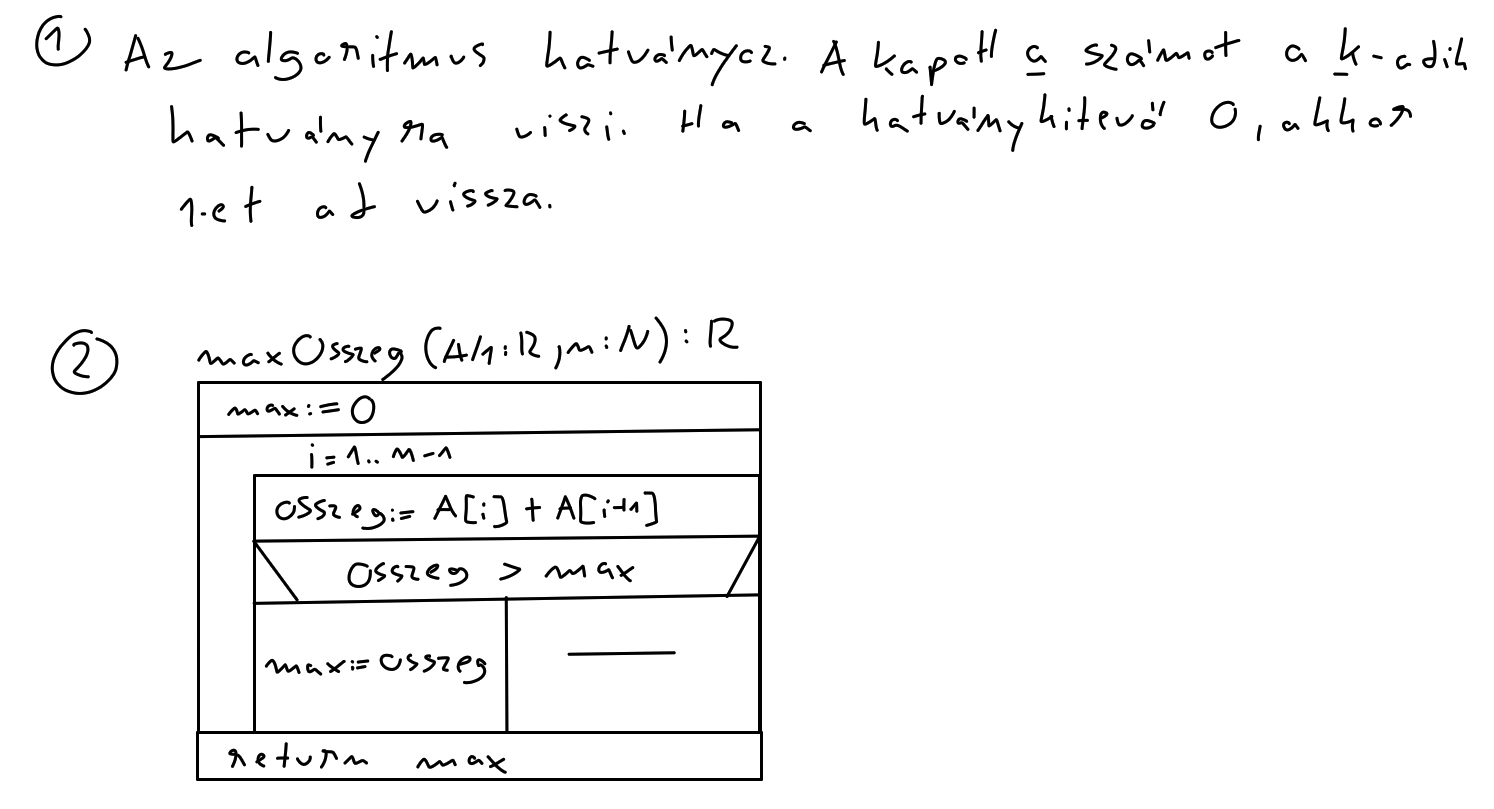 ① Az algoritmus hatványoz. A kapott a számot a k-adik
hatványra viszi. Ha a hatványkitevő 0, akkor
1-et ad vissza.
② maxOsszeg (A/1:R, n:N):R
max:=0
i=1..n-1
osszeg:= A[i] + A[i+1]
osszeg > max
max:= osszeg
return max